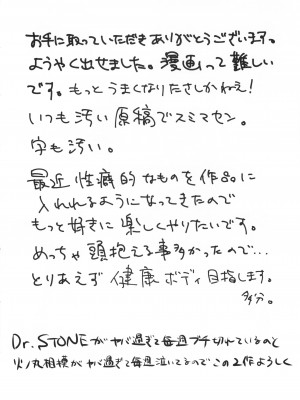 お手に取っていただきありがとうございます。
ようやく出せました。漫画って難しい
です。もっとうまくなりたさしかねぇ！
いつも汚い原稿でスミマセン。
字も汚い。
最近性癖的なものを作品に
入れれるようになってきたので
もっと好きに楽しくやりたいです。
めっちゃ頭抱える事多かったので…
とりあえず健康ボディ目指します。
多分。
Dr.STONEがヤバ過ぎて毎週ブチ切れているのと
火ノ丸相撲がヤバ過ぎて毎週泣いてるのでこの2作よろしく